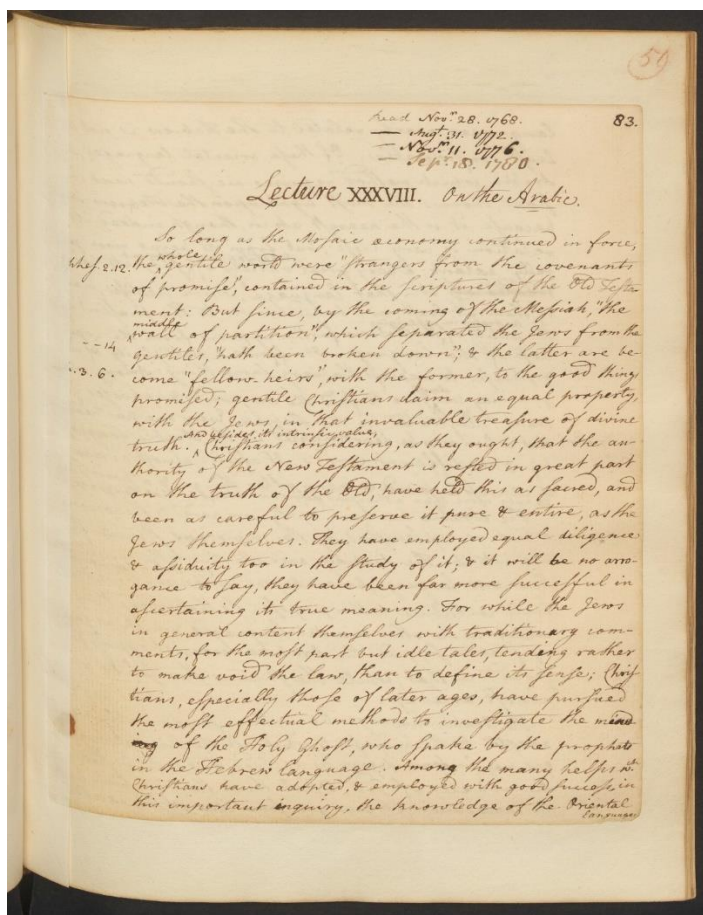 59
83.
Read Novr. 28. 1768.
— Augt. 31. 1772.
— Novr. 11. 1776.
— Sepr. 18. 1780.
Lecture XXXVIII. On the Arabic.
So long as the Mosaic œconomy continued in force,
Ephes. 2.12. the whole gentile world were "strangers from the covenants
of promise", contained in the scriptures of the Old Testa
ment: But since, by the coming of the Messiah, "the
middle wall of partition", which separated the Jews from the
- - 14 gentiles, "hath been broken down"; & the latter are be-
3. 6. come "fellow-heirs", with the former, to the good things
promised; gentile Christians claim an equal property,
with the Jews, in that invaluable treasure of divine
truth. And besides its intrinsic value, Christians considering, as they ought, that the au-
thority of the New Testament is rested in great part
on the truth of the Old, have held this as sacred, and
been as careful to preserve it pure & entire, as the
Jews themselves. They have employed equal diligence
& assiduity too in the study of it; & it will be no arro-
gance to say, they have been far more successful in
ascertaining its true meaning. For while the Jews
in general content themselves with traditionary com-
ments, for the most part but idle tales, tending rather
to make void the law, than to define its sense; Chris
tians, especially those of later ages, have pursued
the most effectual methods to investigate the mind
of the Holy Ghost, who spake by the prophets
in the Hebrew language. Among the many helps wh.
Christians have adopted, & employed with good success, in
this important inquiry, the knowledge of the Oriental
Languages